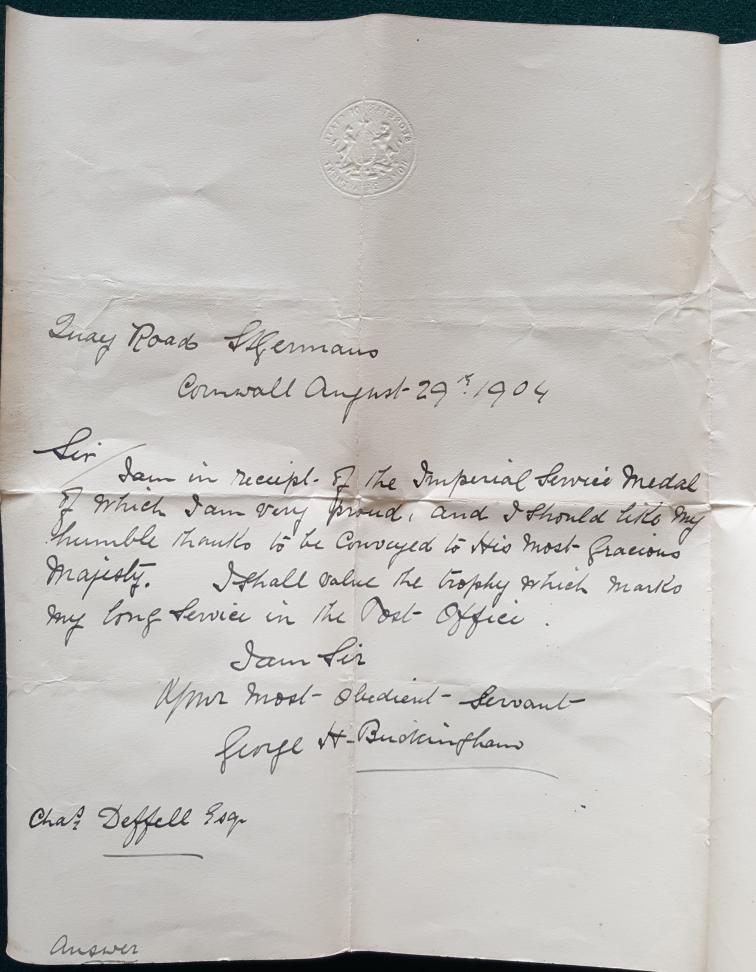 Quay Road St Germans
Cornwall August 29th 1904
Sir/
I am in receipt of the Imperial Service Medal
of which I am very proud, and I should like my
humble thanks to be conveyed to His Most Gracious
Majesty. I shall value the trophy which marks
my long Service in the Post Office.
I am Sir
Your Most Obedient Servant
George H. Buckingham
Chas. Deffell Esq
Answer